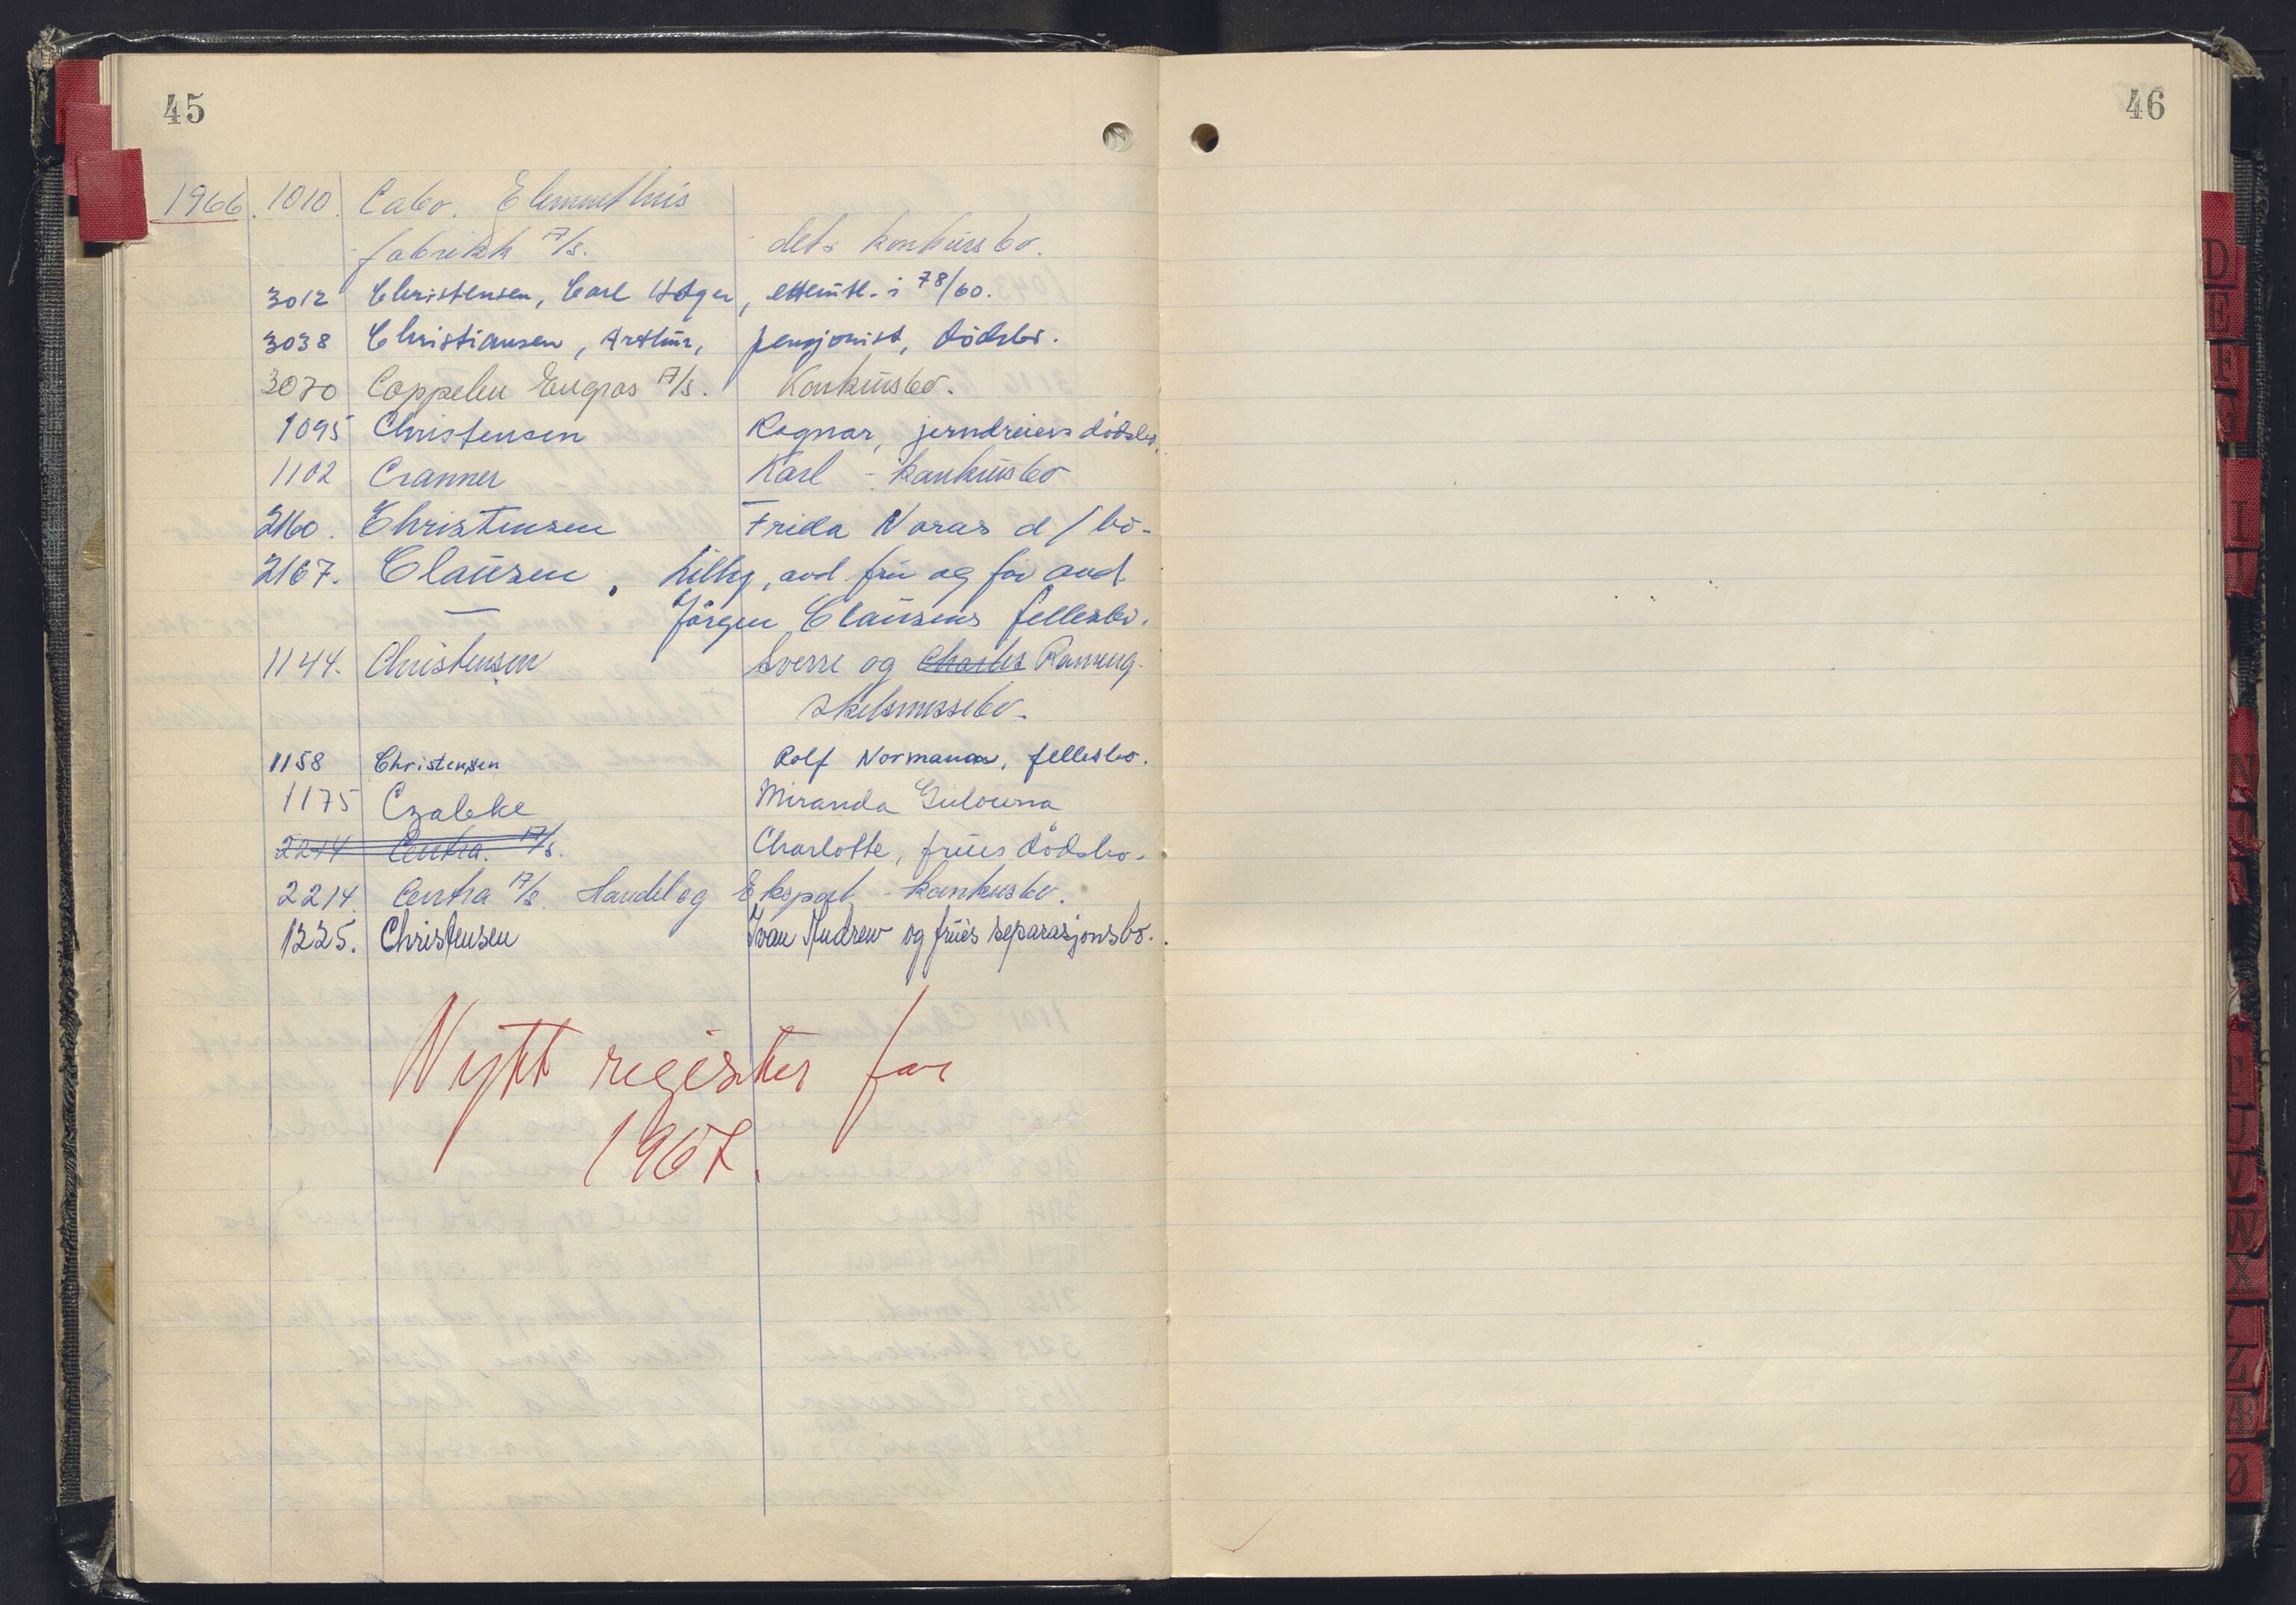 45
46
1966. 1010. Cabo. Elementhus
fabrikk A/S. dets konkursbo.
3012 Christensen, Carl Holger, etterutl. i 78/60.
3038 Christiansen, Arthur, pensjonist, dødsbo.
3070 Cappelen Engros A/S. Konkursbo.
1095 Christensen Ragnar, jerndreiers dødsbo.
1102 Cranner Karl - konkursbo
2160. Christensen Frida Naras d/bo-
2167. Clausen, Lilly, avd. fru og før avd.
Jörgen Clausens fellesbo.
1144. Christensen Sverre og Charles
skilsmissebo-
1158 Christensen Rolf Normann, fellesbo.
1175 Czaleke Miranda
2214 Centra. A/S. Charlotte, frues dødsbo.
2214. Centra A/S. Handel og Eksport - konkursbo.
1225. Christensen Ivan Andrew og frues separasjonsbo.
Nytt register for
1967.
D
E
F
I
N
U
V
W
X
Z
Æ
Ø